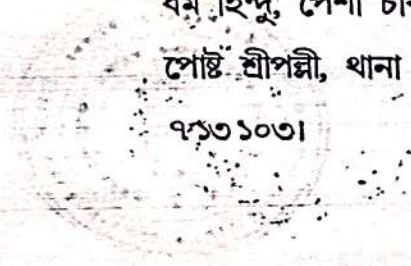 ধর্ম হিন্দু, পেশা
পোষ্ট শ্রীপল্লী, থানা
৭১৩১০৩।